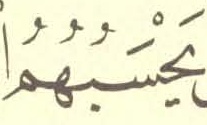 يَحْسَبُهُمُ ا